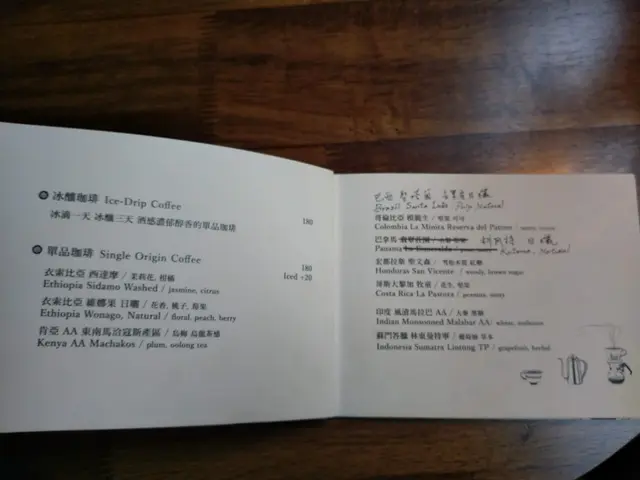 冰釀咖啡 Ice-Drip Coffee
冰滴一天 冰釀三天 酒感濃郁醇香的單品咖啡 180
單品咖啡 Single Origin Coffee 180
Iced +20
衣索比亞 西達摩 / 茉莉花, 柑橘
Ethiopia Sidamo Washed / jasmine, citrus
衣索比亞 日曬 / 花香, 桃子, 莓果
Ethiopia Wonago, Natural / floral, peach, berry
肯亞 AA 東南馬洽冠斯產區 / 烏梅 烏龍茶感
Kenya AA Machakos / plum, oolong tea
巴西 日曬
Brazil Santa Pulp Natural
哥倫比亞 / 堅果 可可
Colombia La Minita Reserva del Patron /
巴拿馬 日曬
Panama Natural
宏都拉斯 聖文森 / 雪松木質 紅糖
Honduras San Vicente / woody, brown sugar
哥斯大黎加 牧童 / 花生, 堅果
Costa Rica La Pastora /
印度 風漬馬拉巴 AA / 大麥
Indian Monsooned Malabar AA / wheat,
蘇門答臘 林東曼特寧 / 草本
Indonesia Sumatra Lintong TP / grapefruit, herbal